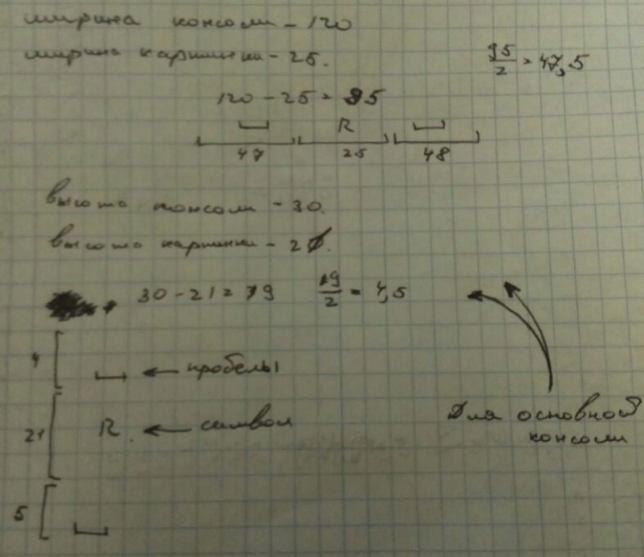 ширина консоли - 120
ширина картинки - 25.
95/2 = 47,5
120 - 25 = 95
R
47 25 48
высота консоли - 30.
высота картинки - 21.
30 - 21 = 9 9/2 = 4,5
4 ← пробелы
21 R. ← символ
Для основной
консоли
5